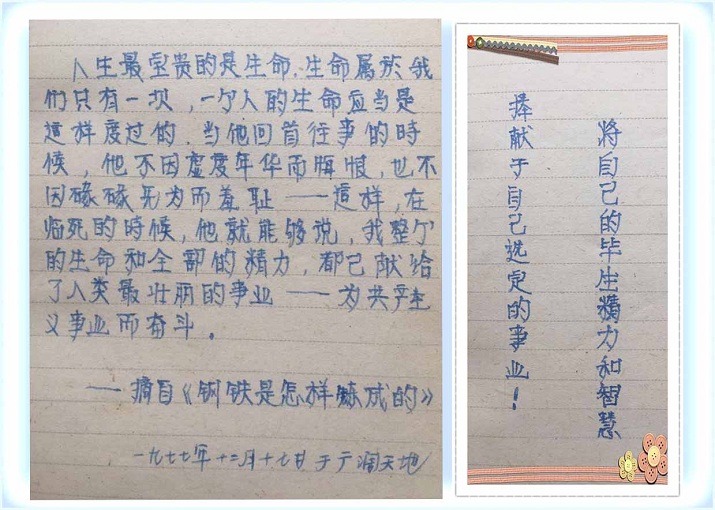 人生最宝贵的是生命，生命属於我
们只有一次，一个人的生命应当是
這样度过的，当他回首往事的時
候，他不因虚度年华而悔恨，也不
因碌碌无为而羞耻——這样，在
临死的時候，他就能够说，我整个
的生命和全部的精力，都已献给
了人类最壮丽的事业——为共产主
义事业而奋斗。
——摘自《钢铁是怎样炼成的》
一九七七年十二月十七日于广阔天地
将自己的毕生精力和智慧
捧献于自己选定的事业！